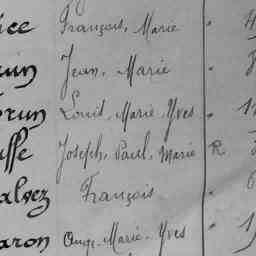 ice François, Marie
Jean, Marie
run Louis, Marie, Yves
ffe Joseph, Paul, Marie R
alvez François
aron Ange, Marie, Yves